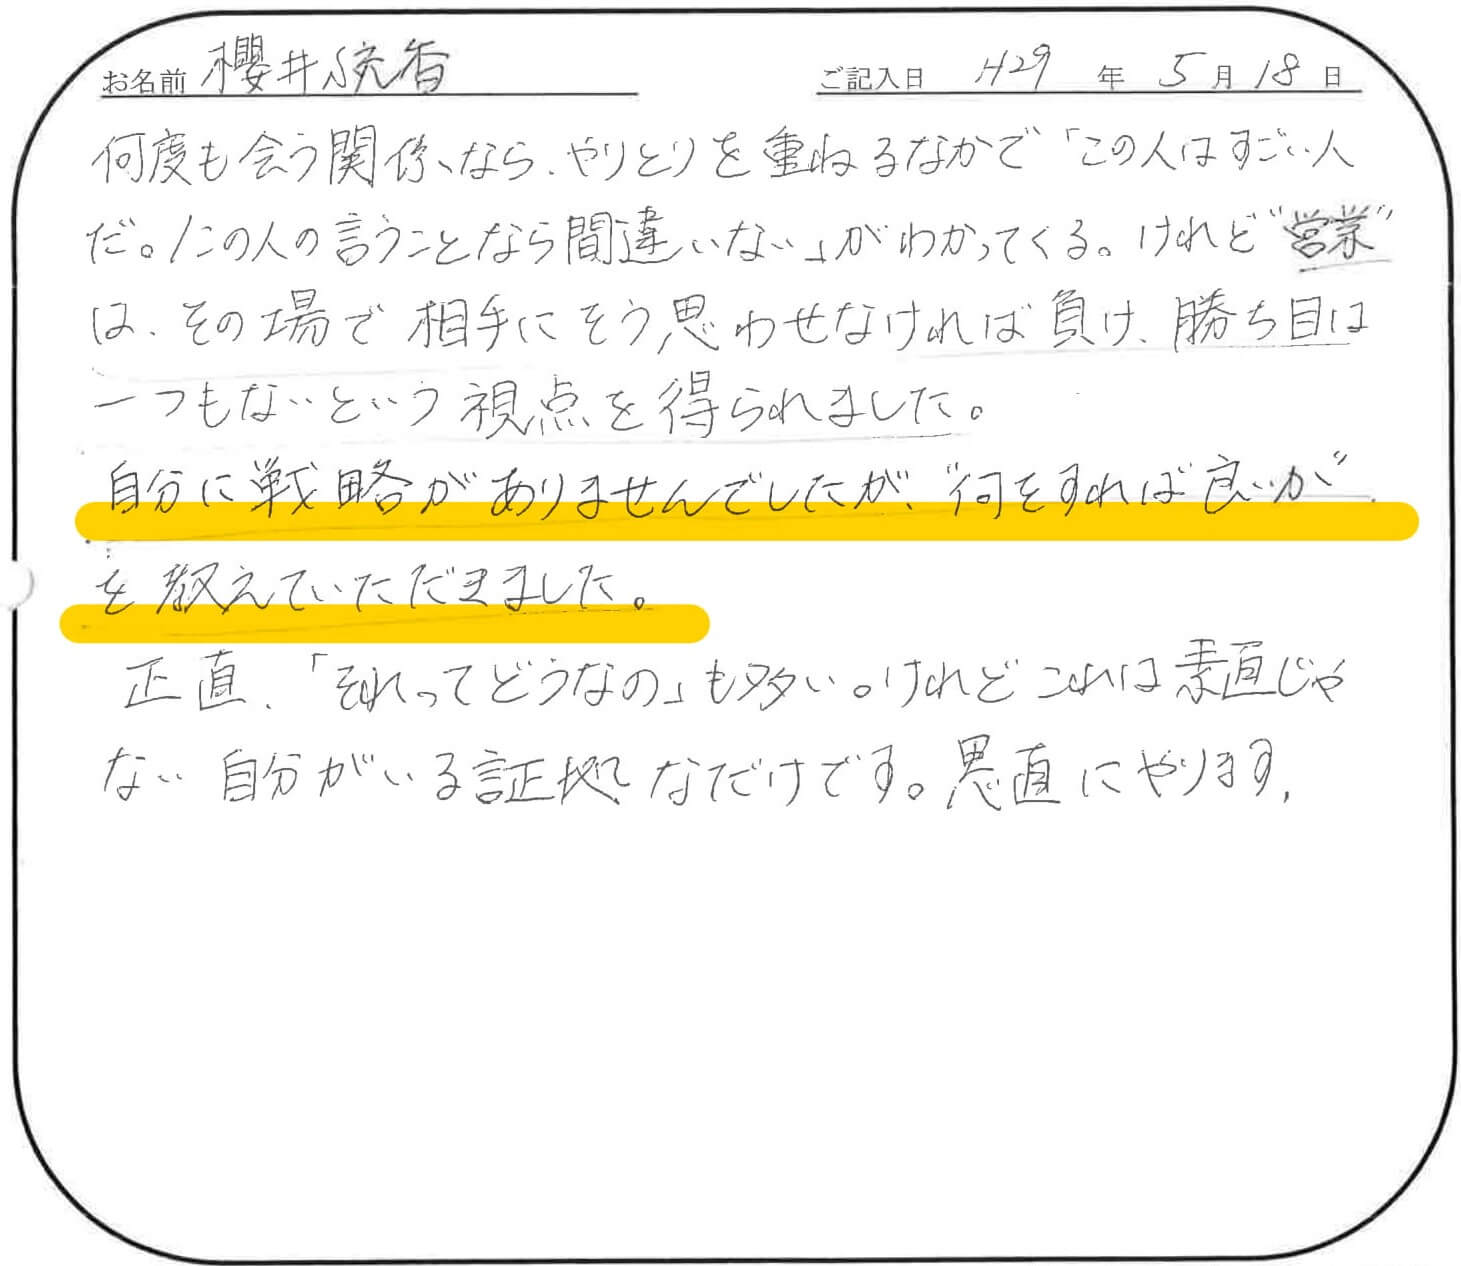 お名前 櫻井統香 ご記入日 H29 年 5 月 18 日
何度も会う関係、なら、やりとりを重ねるなかで「この人はすごい人
だ。/この人の言うことなら間違いない」がわかってくる。けれど"営業"
は、その場で相手にそう思わせなければ負け、勝ち目は
一つもないという視点を得られました。
自分に戦略がありませんでしたが、"何をすれば良いか"
を教えていただきました。
正直、「それってどうなの」も多い。けれどこれは素直じゃ
ない自分がいる証拠なだけです。愚直にやります。